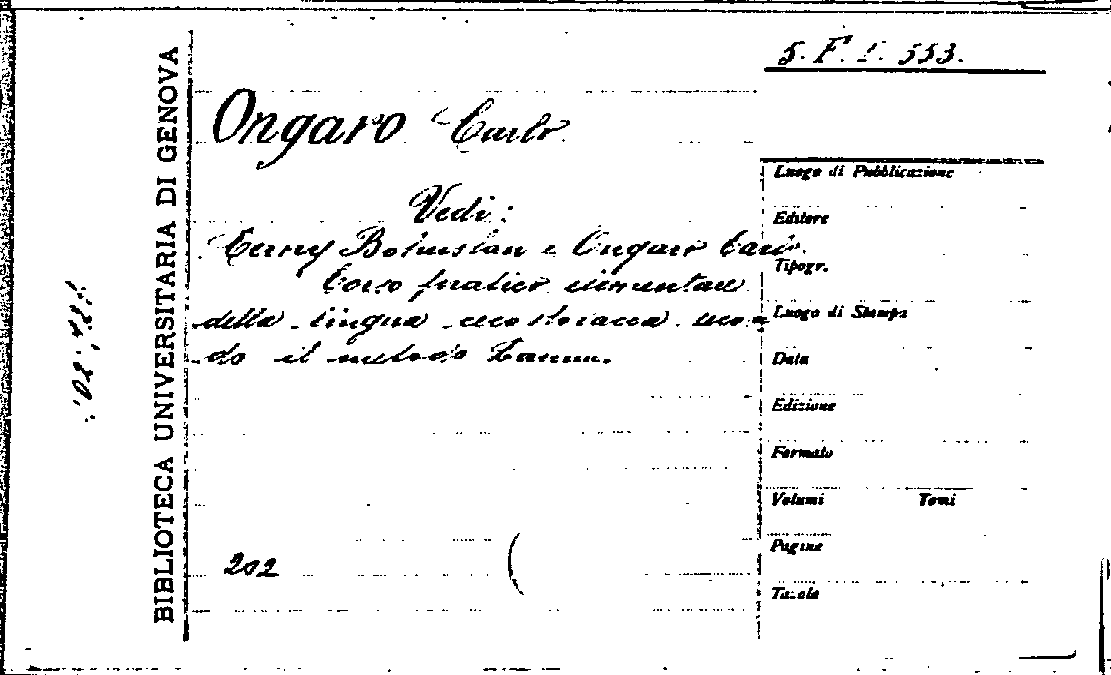 5. F. I. 553.
BIBLIOTECA UNIVERSITARIA DI GENOVA
Ongaro Carlo
Vedi:
Bohuslav e Ongaro Carlo.
Corso pratico elementare
della lingua ceco slovacca secon
do il metodo
202
Luogo di Pubblicazione
Editore
Tipogr.
Luogo di Stampa
Data
Edizione
Formato
Volumi Tomi
Pagine
Tavole